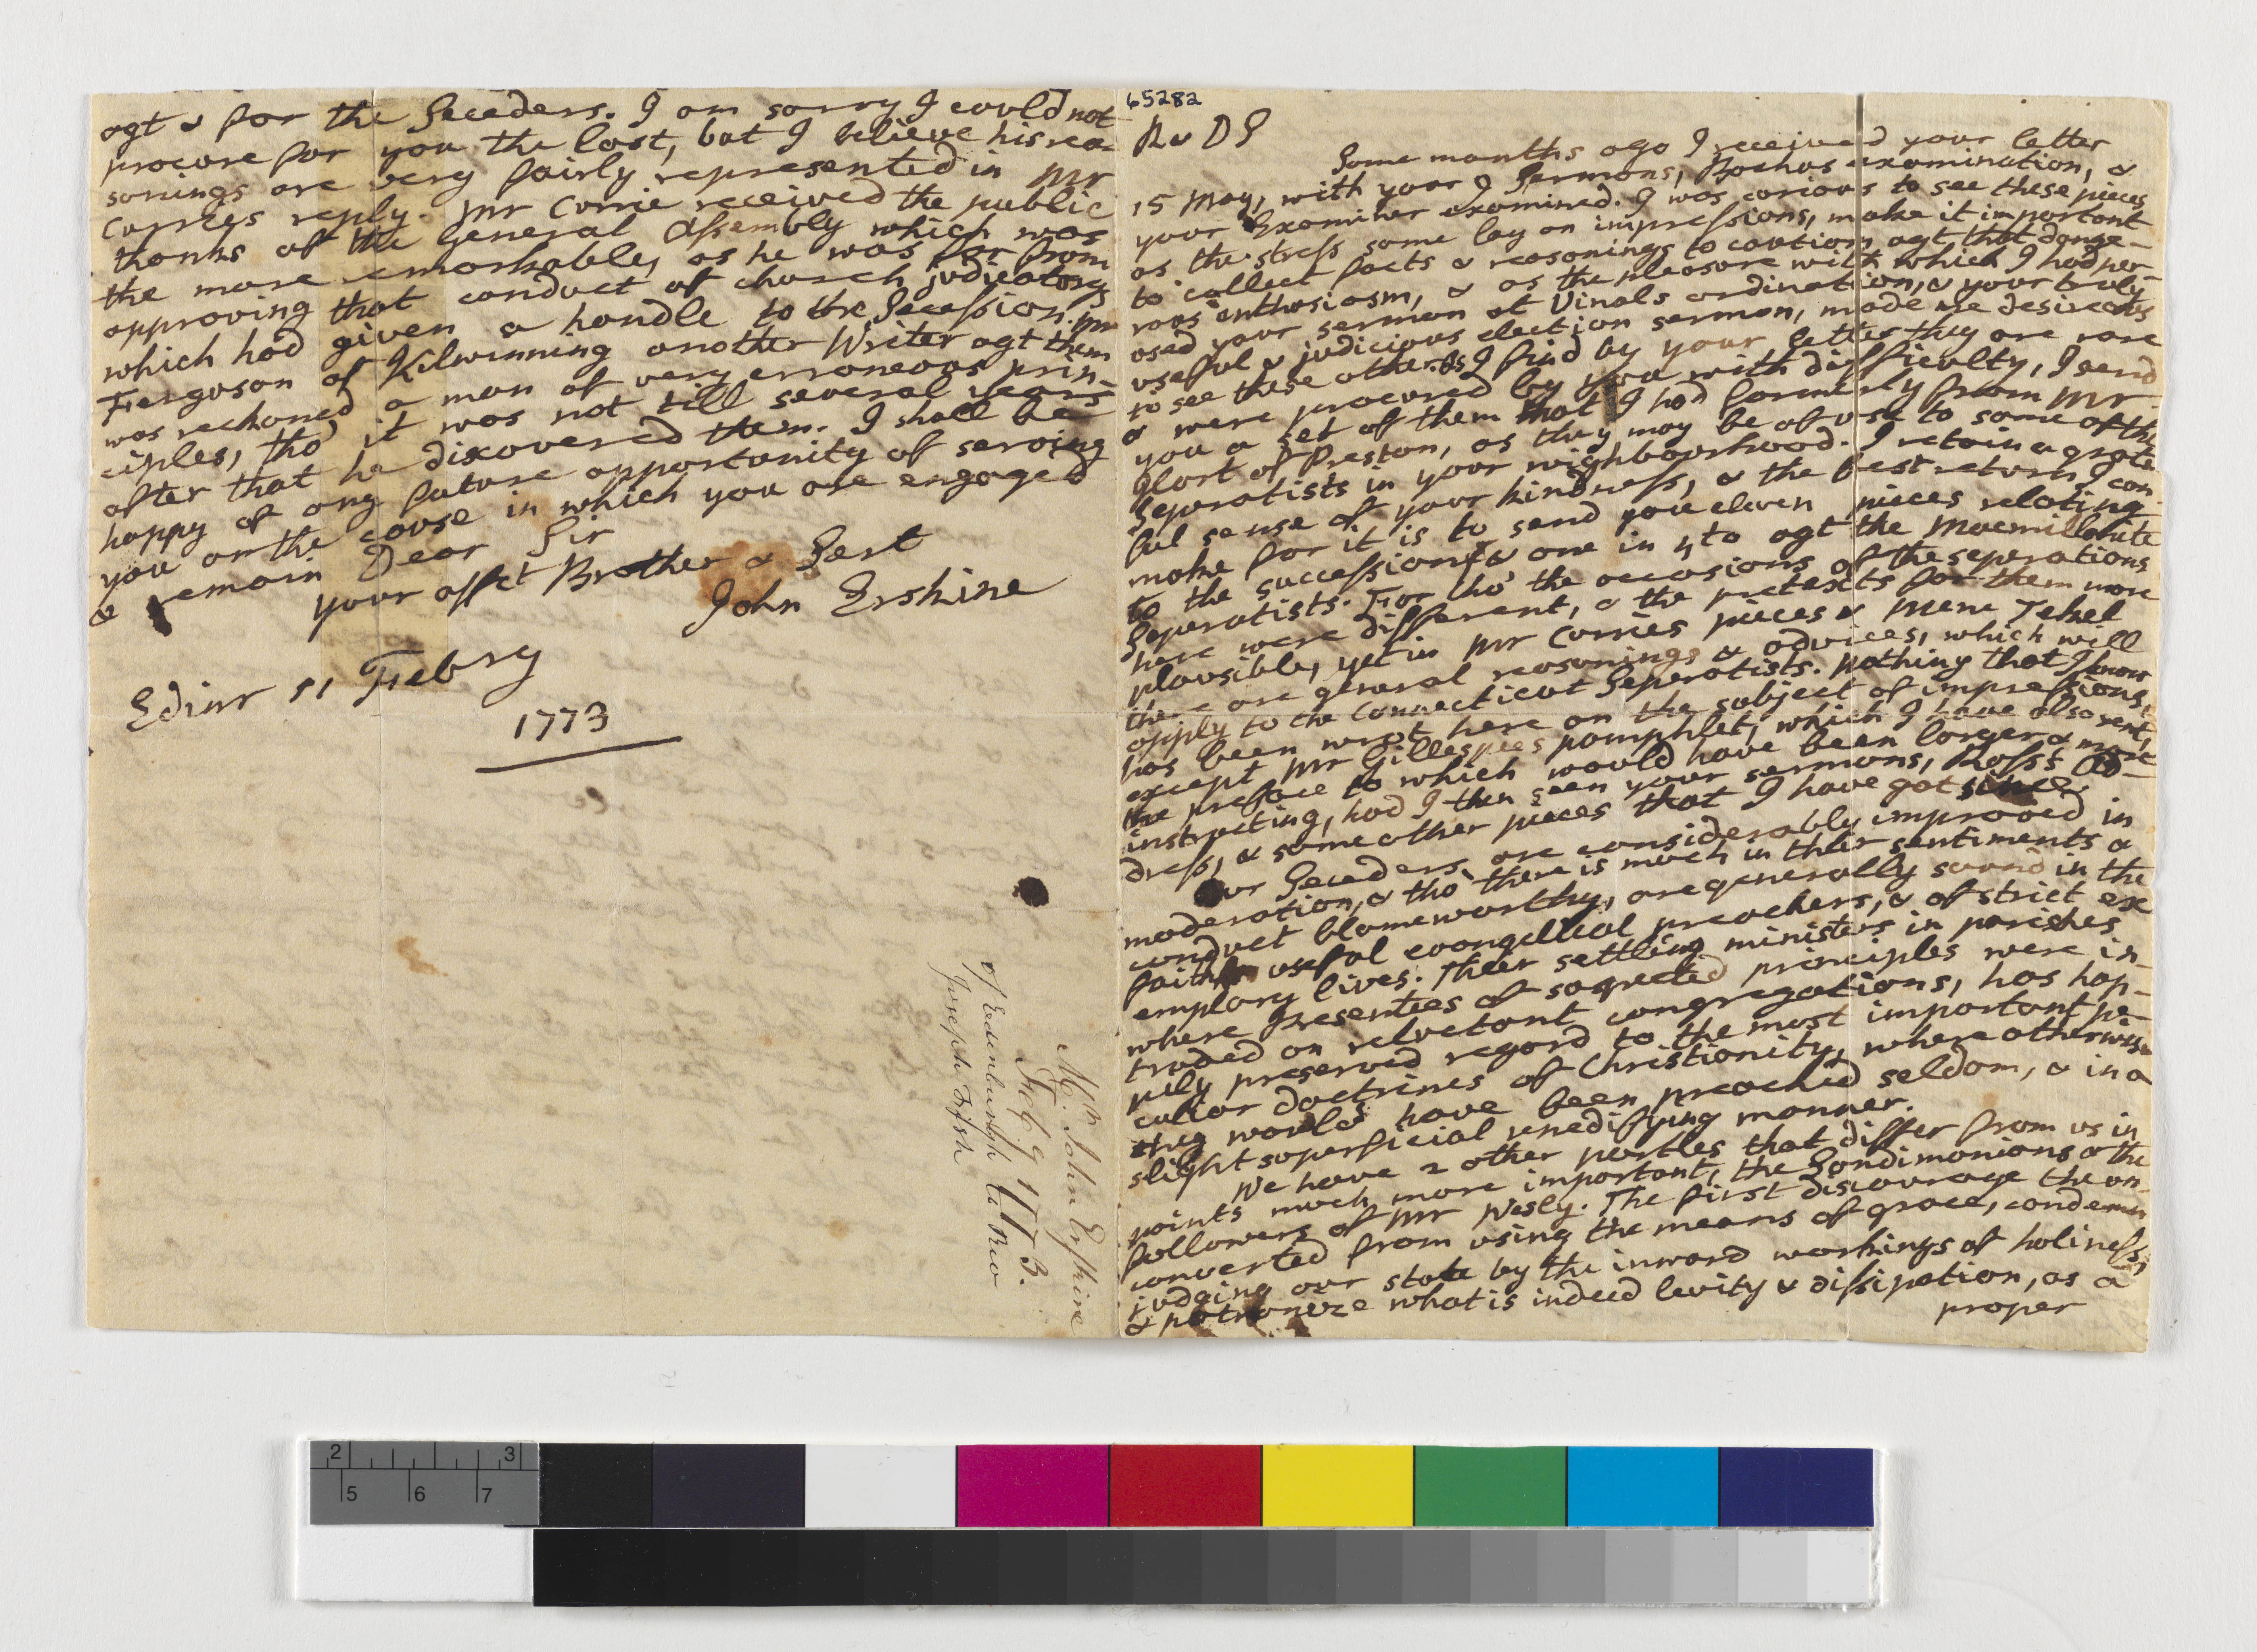 65282
Rv D S
Some months ago I received your letter
15 May, with your 9 Sermons, Backus examination, &
your Examiner examined. I was curious to see these pieces
as the stress some lay on impressions, make it important
to collect facts & reasonings to caution agt that dange-
rous enthusiasm, & as the pleasure with which I had per-
osed your sermon at Vinals ordination, & your truly
useful & judicious election sermon, made me desirous
to see these others. As I find by your letter they are rare
& were procured by you with difficulty, I send
you a set of them that I had formerly from Mr
Glort of Preston, as they may be of use to some of the
Separatists in your nighbourhood. I retain a grate-
ful sense of your kindness, & the best return I can
make for it is to send you eleven pieces relating
to the succession & one in 4to agt the Macmillanite
Separatists. For tho' the occasions of the separations
here were different, & the pretexts for them more
plausible, yet in Mr Corries pieces & Mene Tekel
there are general reasonings & advices, which will
apply to the Connecticut Separatists. Nothing that I know
has been wrot here on the subject of impressions,
except Mr Gillespees pamphlet, which I have also sent,
the preface to which would have been larger & more
instructing, had I then seen your sermons, Rosss Ad-
dress, & some other pieces that I have got since
Our Seceders are considerably improved in
moderation, & tho' there is much in their sentiments &
conduct blameworthy, are generally sound in the
faith useful evangelical preachers, & of strict ex
emplary lives. Their settling ministers in parishes
where presentees of suspected principles were in-
truded on reluctant congregations, has hap-
pily preserved regard to the most important pe-
culiar doctrines of Christianity, where otherwise
they would have been preached seldom, & in a
slight superficial unedifying manner.
We have 2 other parties that differ from us in
points much more important, the Sandimanians & the
followers of Mr Wesly. The first discourage the un-
converted from using the means of grace, condemn
judging our state by the inward workings of holiness,
& patronize what is indeed levity & dissipation, as a
proper
agt & for the Seceders. I am sorry I could not
procure for you the last, but I believe his rea-
sonings are very fairly represented in Mr
Corries reply. Mr Corrie received the public
thanks of the General Assembly which was
the more remarkable, as he was far from
approving that conduct of church judicatory
which had given a handle to the Secession. Mr
Ferguson of Kilwinning another Writer agt them
was reckoned a man of very erroneous prin-
ciples, tho' it was not till several years
after that he discovered them. I shall be
happy of any future opportunity of serving
you or the cause in which you are engaged
& remain Dear Sir
your affct Brother & Sert
John Erskine
Edinr 11 Febry
1773
Mr. John Erskine
Feb 9 1773.
of Edinburgh to Rev
Joseph Fish